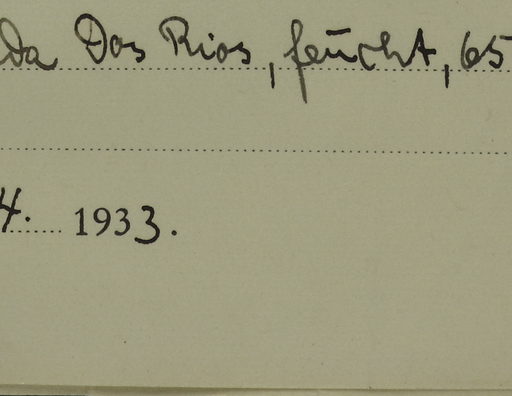 da Dos Rios, feucht, 65
4. 1933.